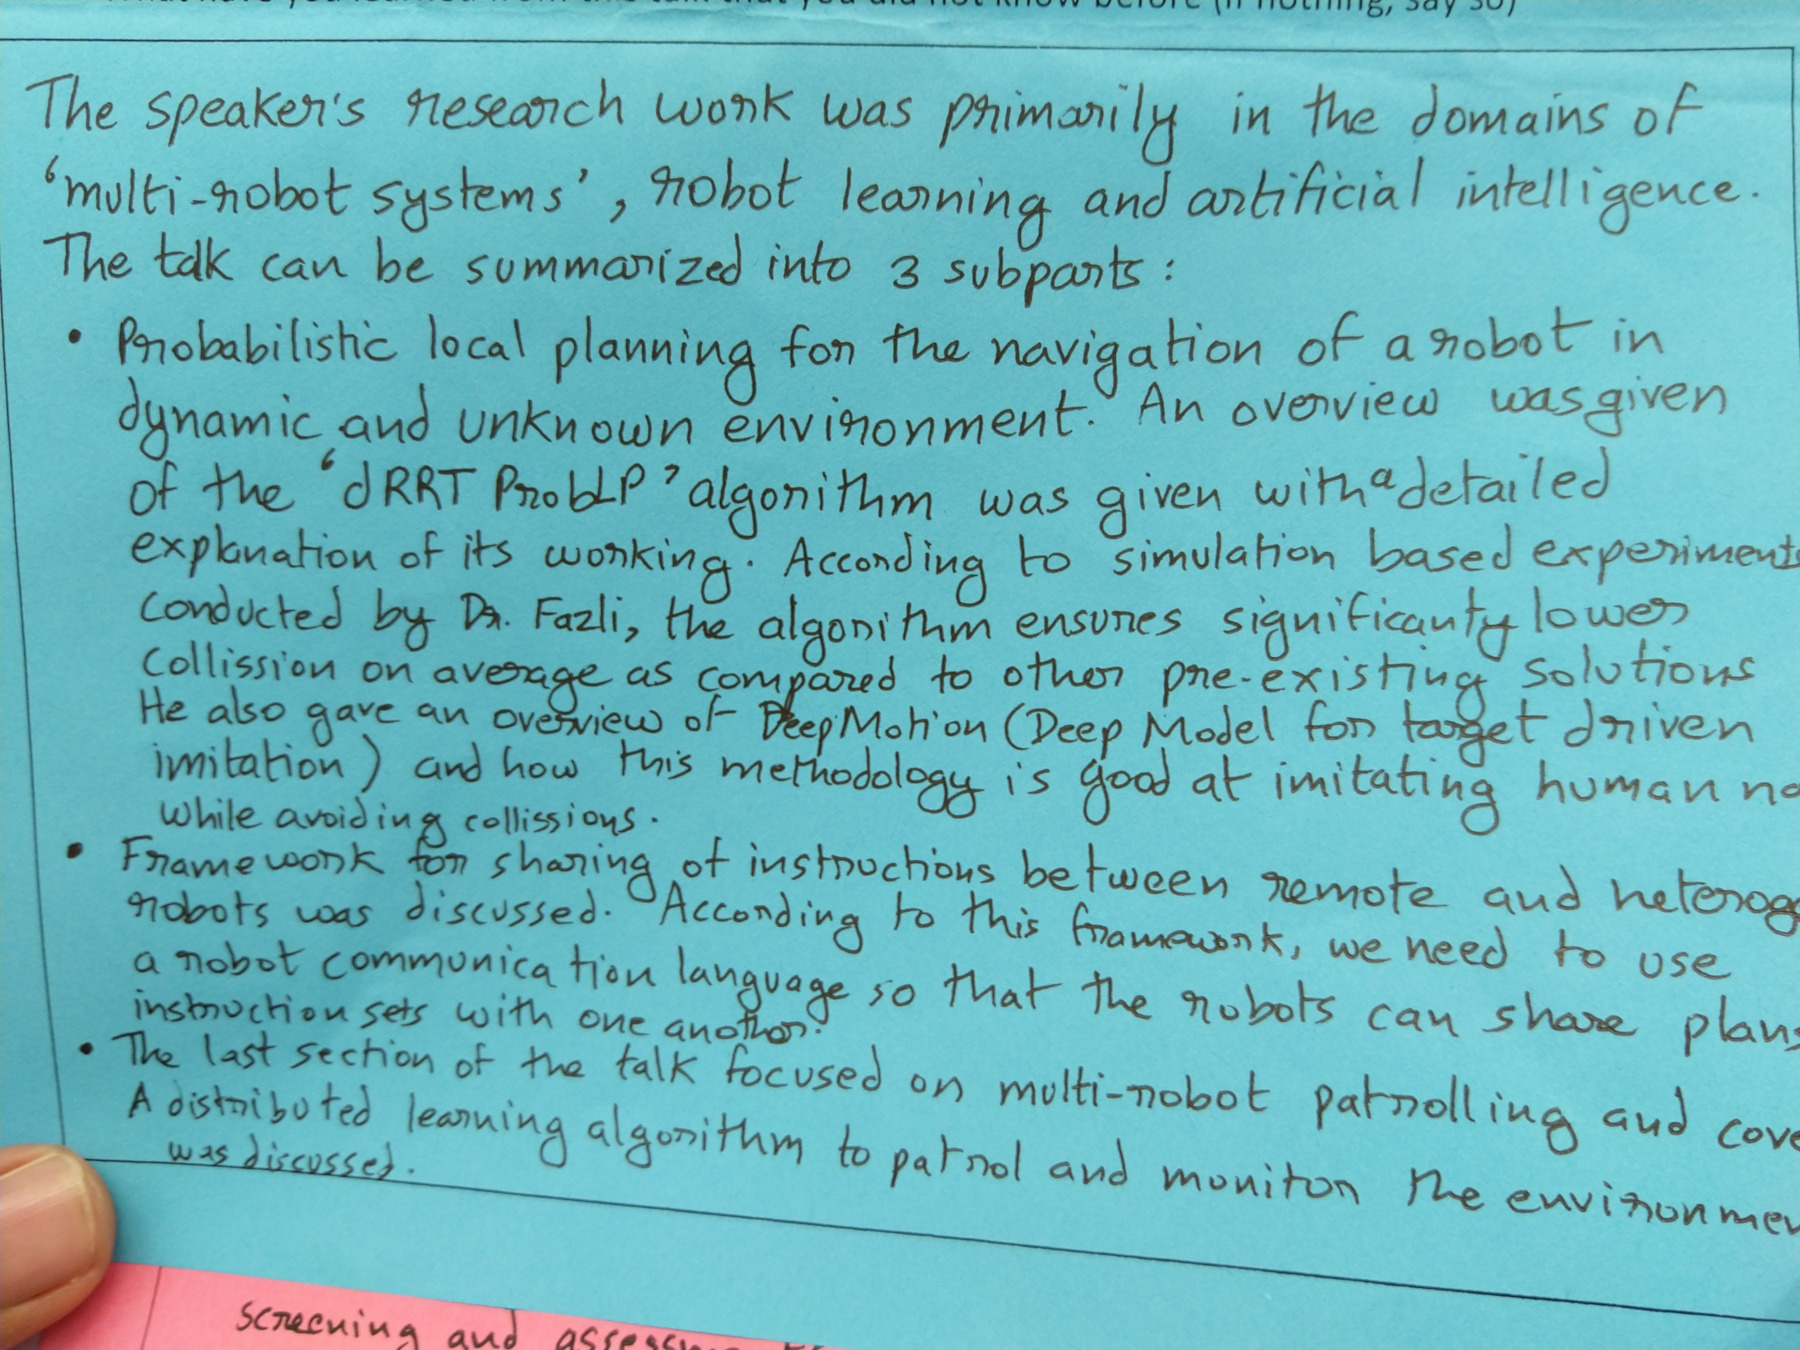 What have you learned from this talk that you did not know before (if nothing, say so)
The speaker's research work was primarily in the domains of
'multi-robot systems', robot learning and artificial intelligence.
The talk can be summarized into 3 subparts:
• Probabilistic local planning for the navigation of a robot in
dynamic and unknown environment. An overview was given
of the 'dRRT ProbLP' algorithm was given with a detailed
explanation of its working. According to simulation based experiments
conducted by Dr. Fazli, the algorithm ensures significanty lower
collission on average as compared to other pre-existing solutions
He also gave an overview of DeepMotion (Deep Model for target driven
imitation) and how this methodology is good at imitating human
while avoiding collissions.
• Framework for sharing of instructions between remote and
robots was discussed. According to this framework, we need to use
a robot communication language so that the robots can share plans
instruction sets with one another.
• The last section of the talk focused on multi-robot patrolling and
A distributed learning algorithm to patrol and monitor the
was discussed.
screening and